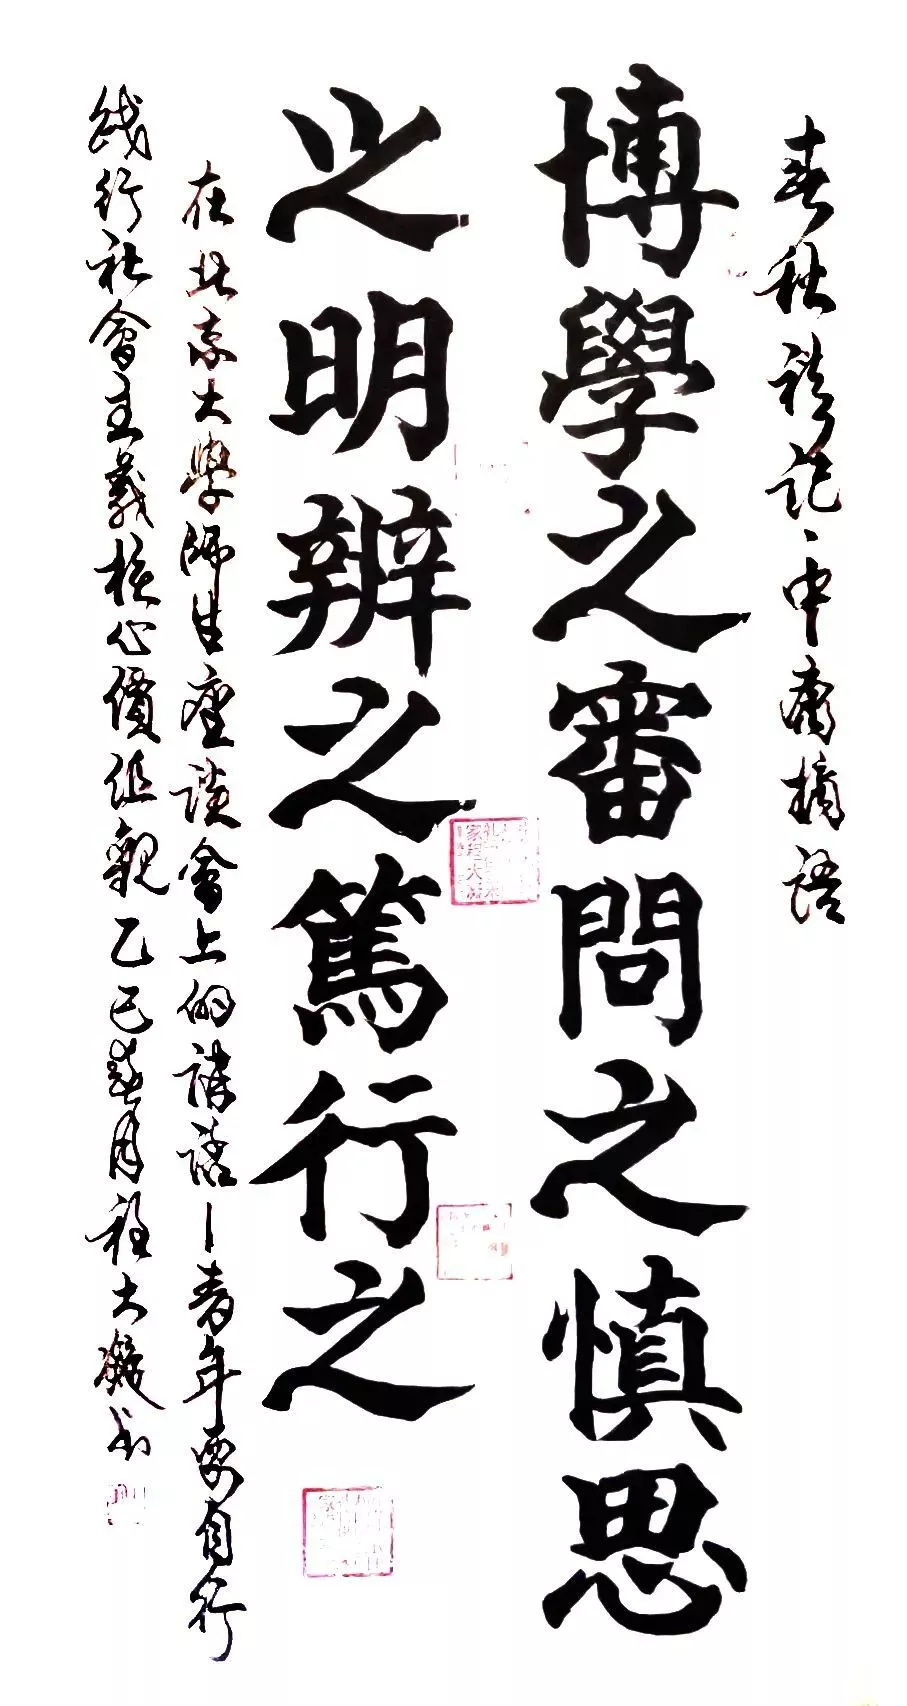 春秋禮記、中庸摘語
博學之審問之慎思
之明辨之篤行之
在北京大學師生座談會上的講話—青年要自行
踐行社會主義核心價值觀乙巳春月程大書